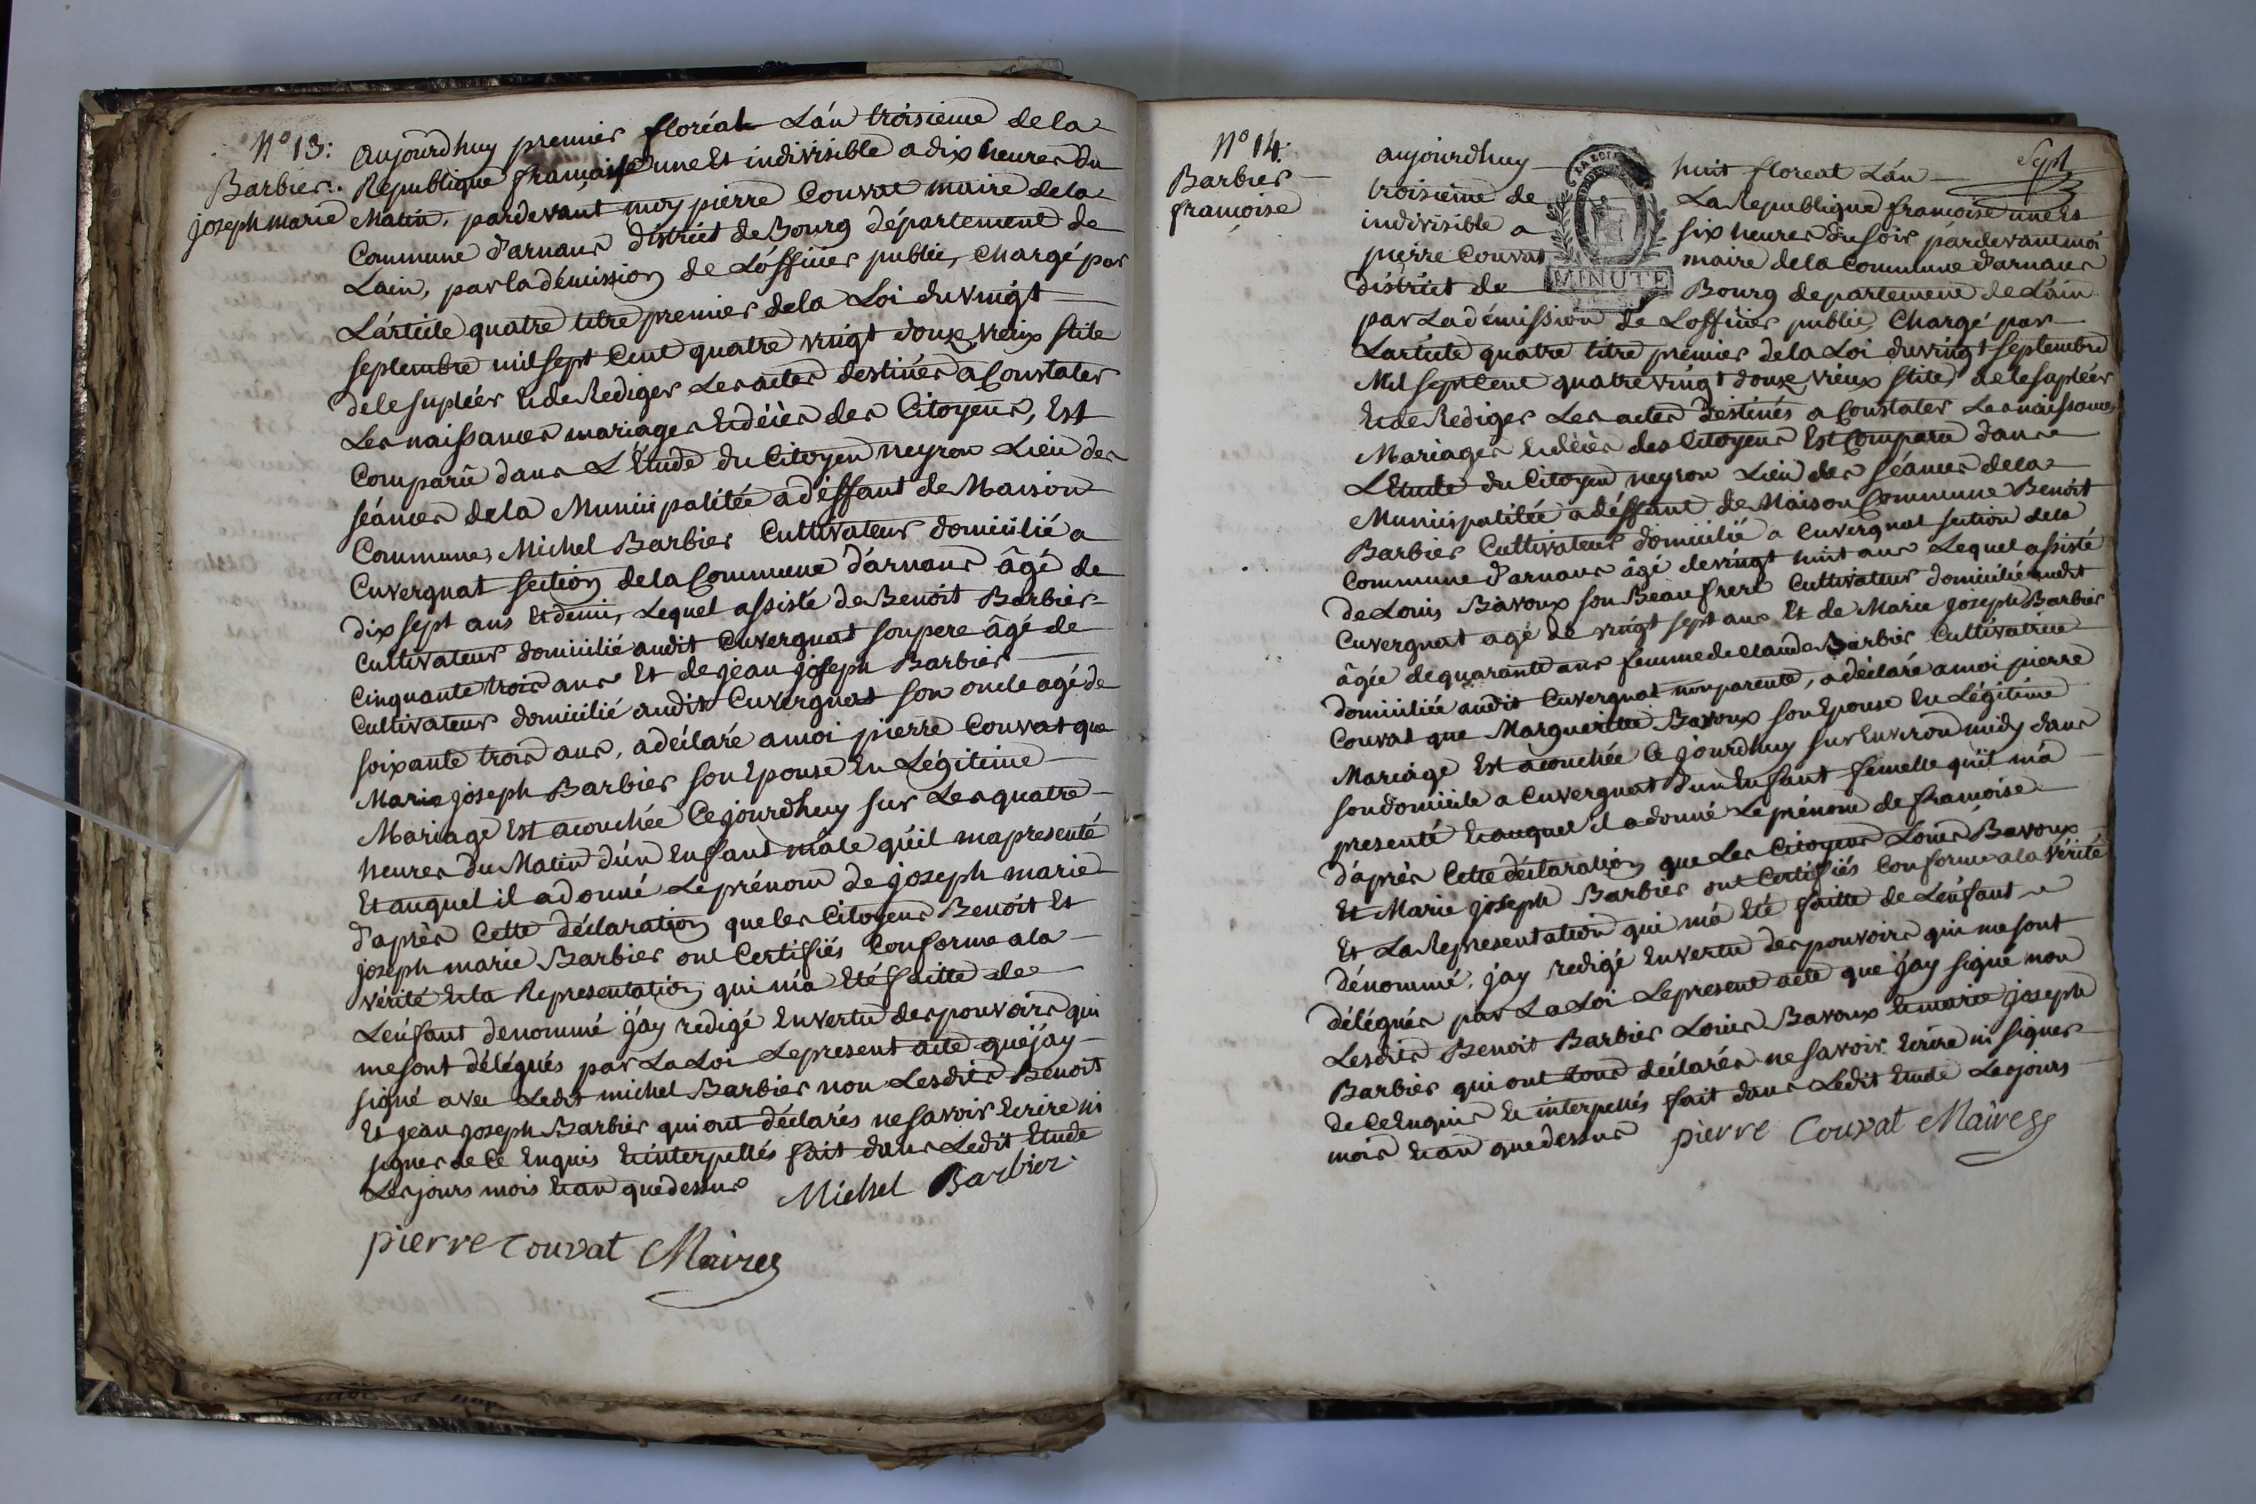 N° 13:
Barbier.
joseph marie
Aujourdhuy premier floréal Lán troisieme dela
Republique françaisse une Et indivisible a dix heures du
Matin, pardevant moy pierre Couvat maire dela
Commune d'arnans district de Bourg département de
Lain, par la démission de Lófficier public, Chargé par
Lárticle quatre titre premier dela Loi du vingt
septembre mil sept Cent quatre vingt douze vieux stile
de le supléér Et de Rediger Les actes destinés a Constater
Les naissances mariages Et décès des Citoyens, Est
Comparû dans L'Etude du Citoyen neyron Lieu des
séances dela Municipalitée a déffaut de Maison
Commune, Michel Barbier Cultivateur domicilié a
Cuvergnat section dela Commune d'arnans âgé de
dix sept ans Et demi, Lequel assisté de Benoit Barbier
Cultivateur domicilié audit Cuvergnat son pere âgé de
Cinquante trois ans Et de jean joseph Barbier
Cultivateur domicilié audit Cuvergnat son oncle agé de
soixante trois ans, a déclaré a moi pierre Couvat que
Marie joseph Barbier son Epouse En Légitime
Mariage Est acouchée Ce jourdhuy sur Les quatre
heures du Matin d'un Enfant mâle qu'il ma presenté
Et auquel il a donné Le prénom de joseph marie
d'après Cette déclaration que les Citoyens Benoit Et
joseph marie Barbier ont Certifiés Conforme a la
vérité Et la Representation qui m'a Eté faitte de
Lénfant denommé j'ay redigé En vertu des pouvoirs qui
me sont délégués par La Loi Le present acte que j'ay
signé avec Ledit michel Barbier non Lesdits Benoit
Et jean joseph Barbier qui ont déclarés ne savoir Ecrire ni
signer de Ce Enquis Et interpellés fait dans Ledit Etude
Les jours mois Et an que dessus Michel Barbier
pierre Couvat Maire
N° 14.
Barbier
françoise
Sept
aujourdhuy huit floreal Lán
troisieme de La Republique françoise une Et
indivisible a six heures du soir pardevant moi
pierre Couvat maire de la Commune d'arnans
district de Bourg departement de Láin
MINUTE
par La démission de Lofficier public, Chargé par
Lárticle quatre titre premier dela Loi du vingt septembre
Mil sept Cent quatre vingt douze vieux stile, de le supléér
Et de Rediger Les actes destinés a Constater Les naissances
Mariages Et décès des Citoyens Est Comparu dans
L'Etude du Citoyen neyron Lieu des séances dela
Municipalitée a déffaut de Maison Commune Benoit
Barbier Cultivateur domicilié a Cuvergnat section dela
Commune d'arnans âgé de vingt huit ans Lequel assisté
de Louis Bavoux son Beau frere Cultivateur domicilié audit
Cuvergnat agé de vingt sept ans Et de Marie joseph Barbier
âgée de quarante ans femme de Claude Barbier Cultivatrice
domiciliée audit Cuvergnat non parente, a déclaré a moi pierre
Couvat que Margueritte Bavoux son Epouse En Légitime
Mariage Est acouchée Ce jourdhuy sur Environ midy dans
son domicile a Cuvergnat d'un Enfant femelle qu'il m'a
presenté Et auquel il a donné Le prénom de françoise
d'après Cette déclaration que Les Citoyens Louis Bavoux
Et Marie joseph Barbier ont Certifiés Conforme a la vérité
Et La Representation qui m'a Eté faitte de Lénfant
dénommé, j'ay redigé En vertu des pouvoirs qui me sont
délégués par La Loi Le present acte que j'ay signé non
Lesdits Benoit Barbier Louis Bavoux Et marie joseph
Barbier qui ont tous déclarés ne savoir Ecrire ni signer
de Ce Enquis Et interpellés fait dans Ledit Etude Les jours
mois Et an que dessus pierre Couvat Maire